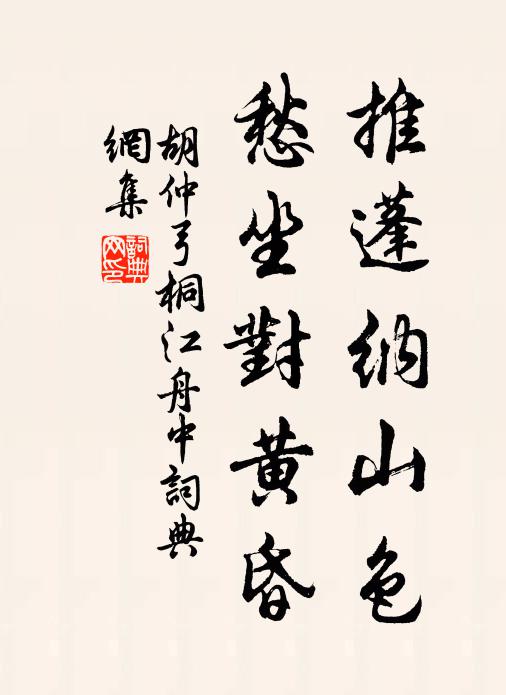 推蓬納山色
愁坐對黃昏
胡仲弓桐江舟中詞典
網集
詞典網印